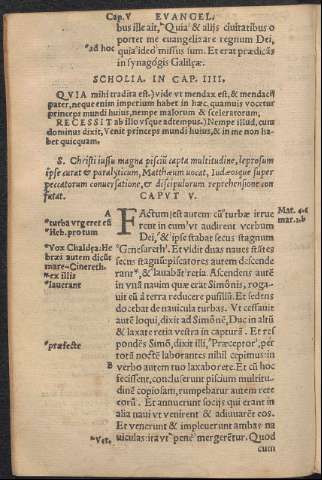 Cap. V EVANGEL.
bus ille ait, "Quia & alijs ciuitatibus o
portet me euangelizare regnum Dei,
"ad hoc quia "ideo missus sum. Et erat prædicās
in synagogis Galilææ.
SCHOLIA. IN CAP. IIII.
QVIA mihi tradita est.) vide vt mendax est, & mendacij
pater, neque enim imperium habet in hæc. quamuis vocetur
princeps mundi huius, nempe malorum & sceleratorum,
RECESSIT ab illo vsque ad tempus.) Nempe illud, cum
dominus dixit, Venit princeps mundi huius, & in me non ha
bet quicquam.
S. Christi iussu magna pisciū capta multitudine, leprosum
ipse curat & paralyticum, Matthæum vocat, Iudæosque super
peccatorum conuersatione, & discipulorum reprehensione con
futat.
CAPVT V.
A FActum est autem cū "turbæ irrue Mat. 4.c
"turba vrgeret eū rent in eum "vt audirent verbum mar. 1.b
"Heb. protum Dei, & ipse stabat secus stagnum
"Vox Chaldæa: He "Genesareth. Et vidit duas naues stātes
bræis autem dicūt secus stagnū: piscatores autem descende
mare Cinereth. rant", & lauabāt retia. Ascendens autē
"ex illis in vnā nauim quæ erat Simōnis, roga-
lauerant uit eū à terra reducere pusillū. Et sedens
docebat de nauicula turbas. Vt cessauit
autē loqui, dixit ad Simōnē, Duc in altū
& laxate retia vestra in capturā. Et res
"præfecte pondēs Simō, dixit illi, "Præceptor", per
totā noctē laborantes nihil cepimus: in
B verbo autem tuo laxabo rete. Et cū hoc
fecissent, concluserunt piscium multitu-
dinē copiosam, rumpebatur autem rete
eorū. Et annuerunt socijs qui erant in
alia naui vt venirent & adiuuarēt eos.
Et venerunt & impleuerunt ambas na
uiculas: ita vt "penè mergerētur. Quod
cum